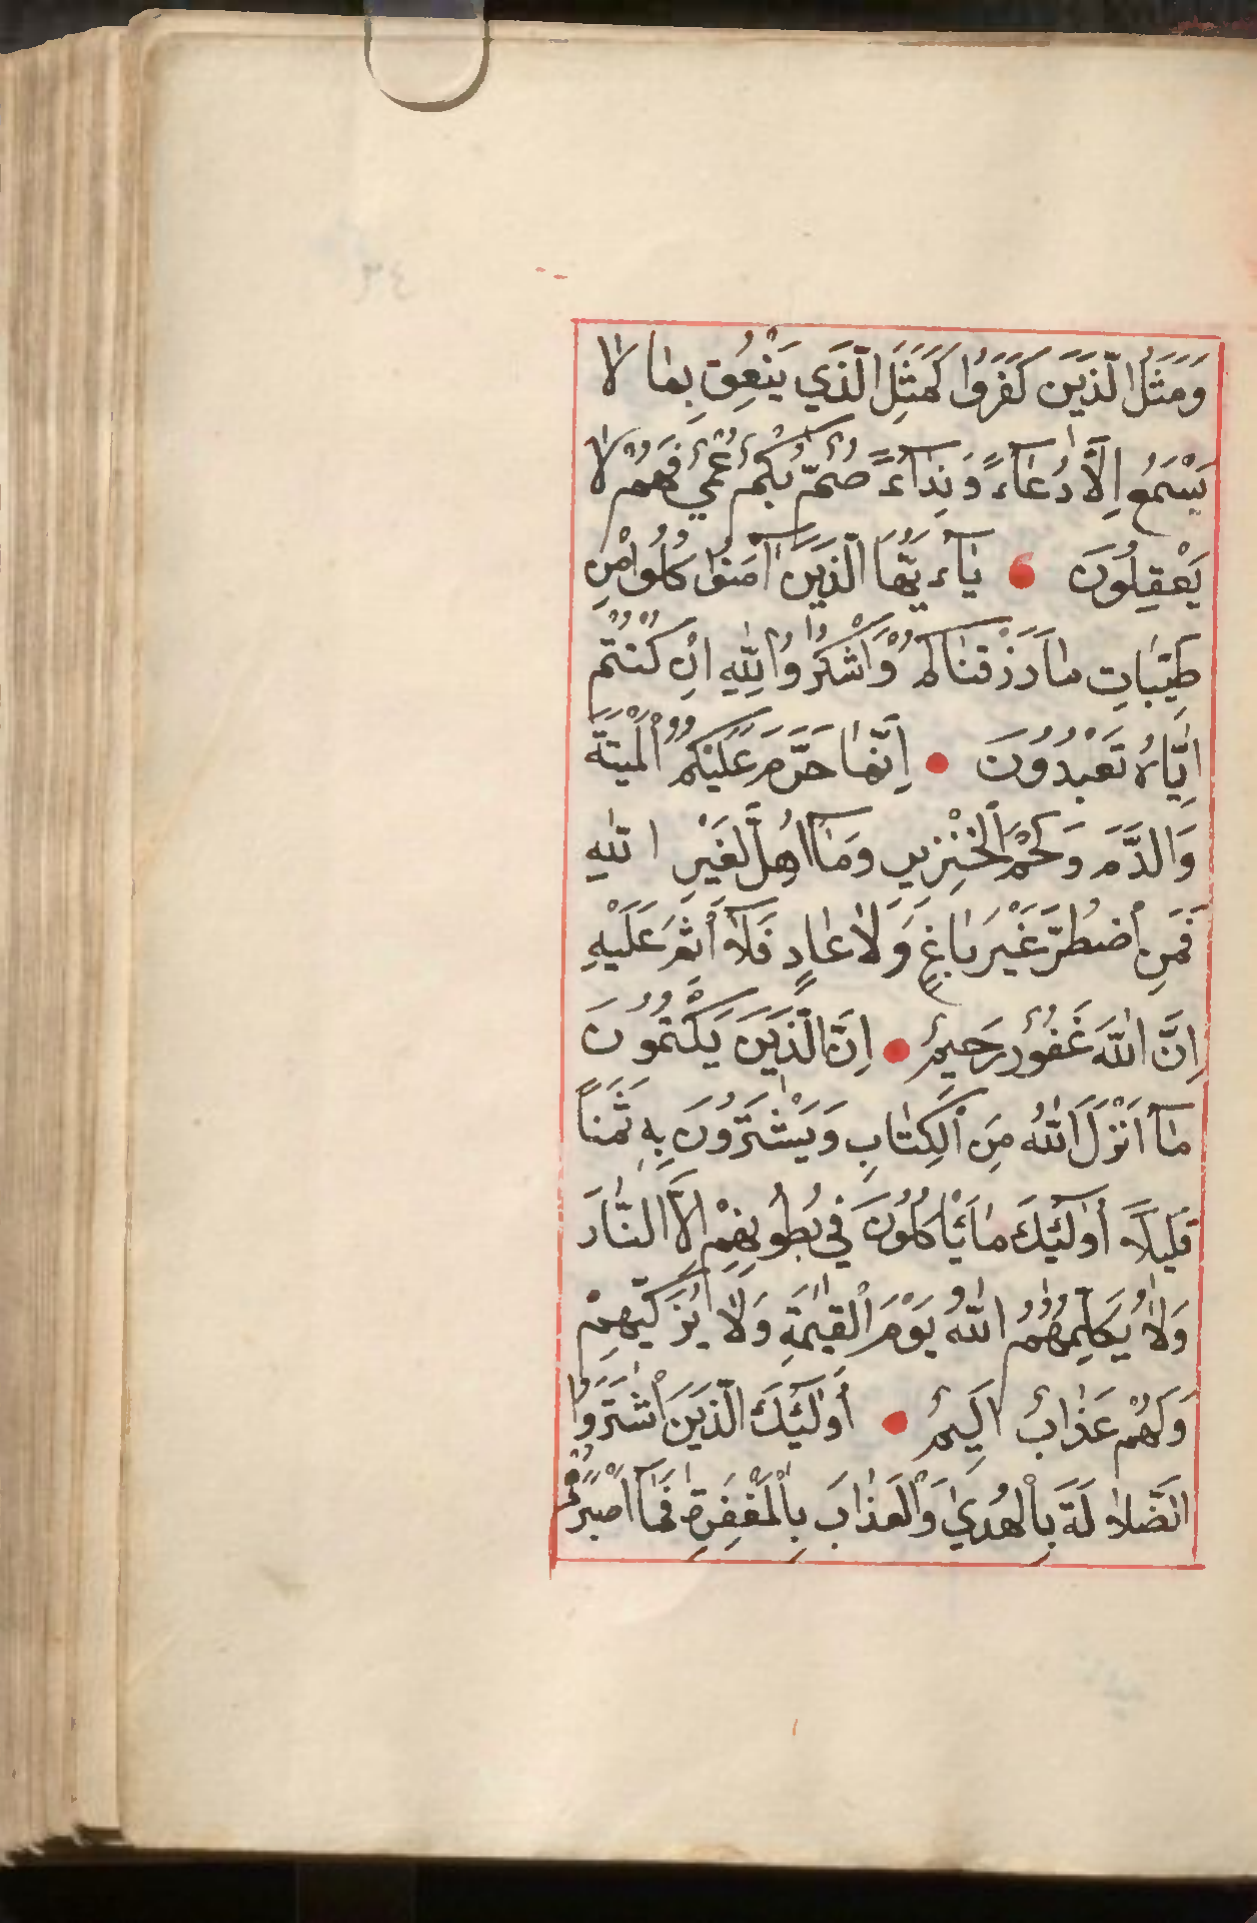 وَمَثَلُ الَّذَيَنَ كَفَرَوُا كَمَثَلِ الَّذَي يَنْعِقُ بِمَا لَا
يَسْمَعُ اِلَّا دُعَآءً وَنِدَآءً صُمٌّ بُكْمٌ عُمْيٌ فَهُمْ لَا
يَعْقِلُونَ ● يَآءيَّهَا الَّذَيَنَ اٰمَنُوا كُلُوا مِنْ
طَيِّبَاتِ مَا رَزَقْنَاكُمْ وَاَشْكُرُوا لِلّٰهِ اِنْ كُنْتُمْ
اِيَّاهُ تَعْبُدُونَ ● اِنَّمَا حَرَّمَ عَلَيْكُمُ اَلْمَيْتَةَ
وَالدَّمَ وَلَحْمَ اَلْخِنْزِيرِ وَمَآ اُهِلَّ لِغَيْرِ اللّٰهِ
فَمَنِ اْضطُرَّ غَيْرَ بَاغٍ وَلَا عَادٍ فَلَآ اَثْمَ عَلَيْهِ
اِنَّ اللّٰهَ غَفُوٌر رَحَيِمٌ ● اِنَّ الَّذَيَنَ يَكْتُمُونَ
مَآ اَنْزَلَ اللّٰهُ مِنَ اَلْكِتَابِ وَيَشْتَرُونَ بِهِ ثَمَنًا
قَلَيِلًا اُولٰٓئِكَ مَا يَأْكُلُونَ فِي بُطُونِهِمْ اِلَّا النَّارَ
وَلَا يُكَلِّمُهُمُ اللّٰهُ يَوْمَ اَلْقِيٰمَةِ وَلَا يُزَكِّيهِمْ
وَلَهُمْ عَذَابٌ اَلَيِمٌ ● اُولٰٓئِكَ الَّذَيَنَ اَشْتَرَوُا
الضَّلَالَةَ بِاَلْهُدَيٰ وَاَلْعَذَابَ بِاَلْمَغْفِرَةِ فَمَآ اَصْبَرَهُمْ